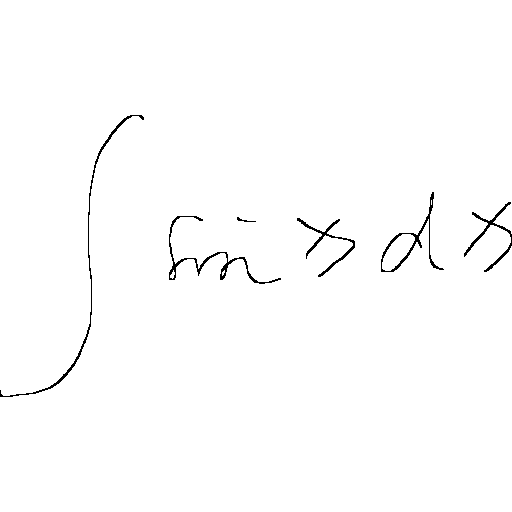 ∫ sin x dx